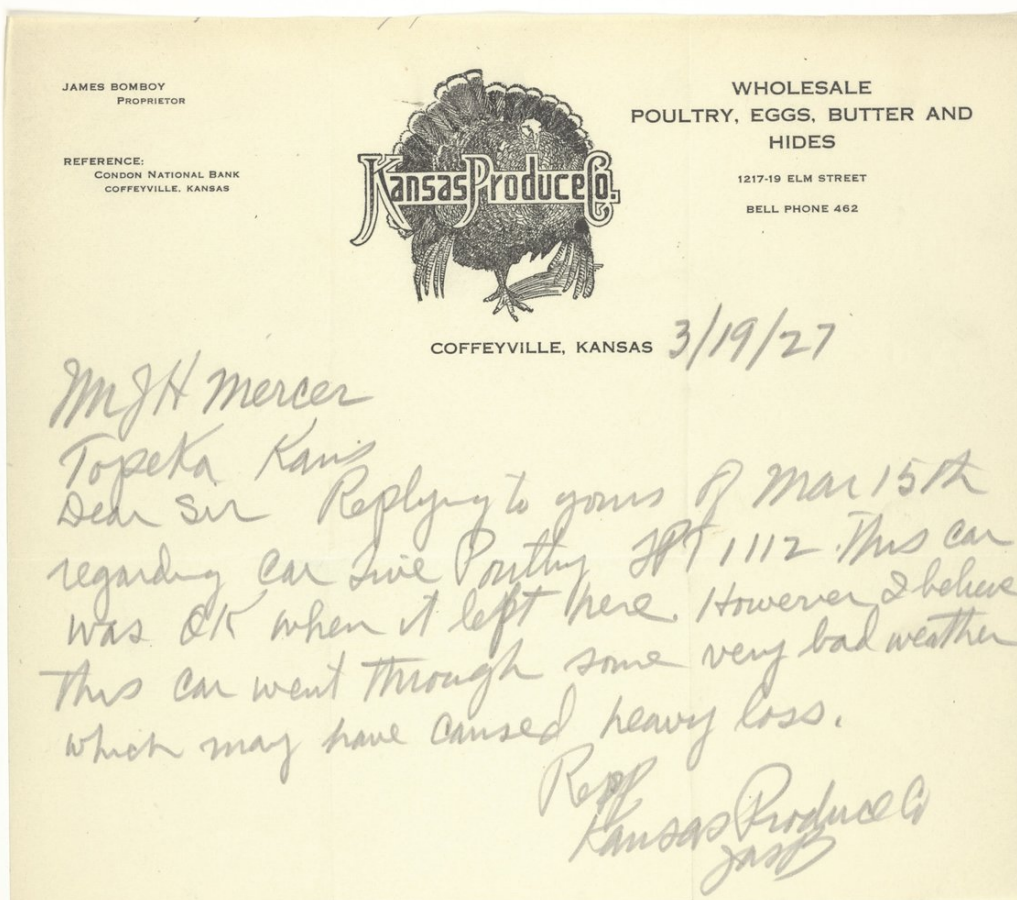 JAMES BOMBOY
PROPRIETOR
REFERENCE:
CONDON NATIONAL BANK
COFFEYVILLE, KANSAS
Kansas Produce Co.
WHOLESALE
POULTRY, EGGS, BUTTER AND
HIDES
1217-19 ELM STREET
BELL PHONE 462
COFFEYVILLE, KANSAS 3/19/27
Mr J H Mercer
Topeka Kans
Dear Sir Replying to yours of Mar 15th
regarding car Live Poultry LPT 1112. This car
was OK when it left here. However, I believe
this car went through some very bad weather
which may have caused heavy loss.
Resp
Kansas Produce Co
JasB